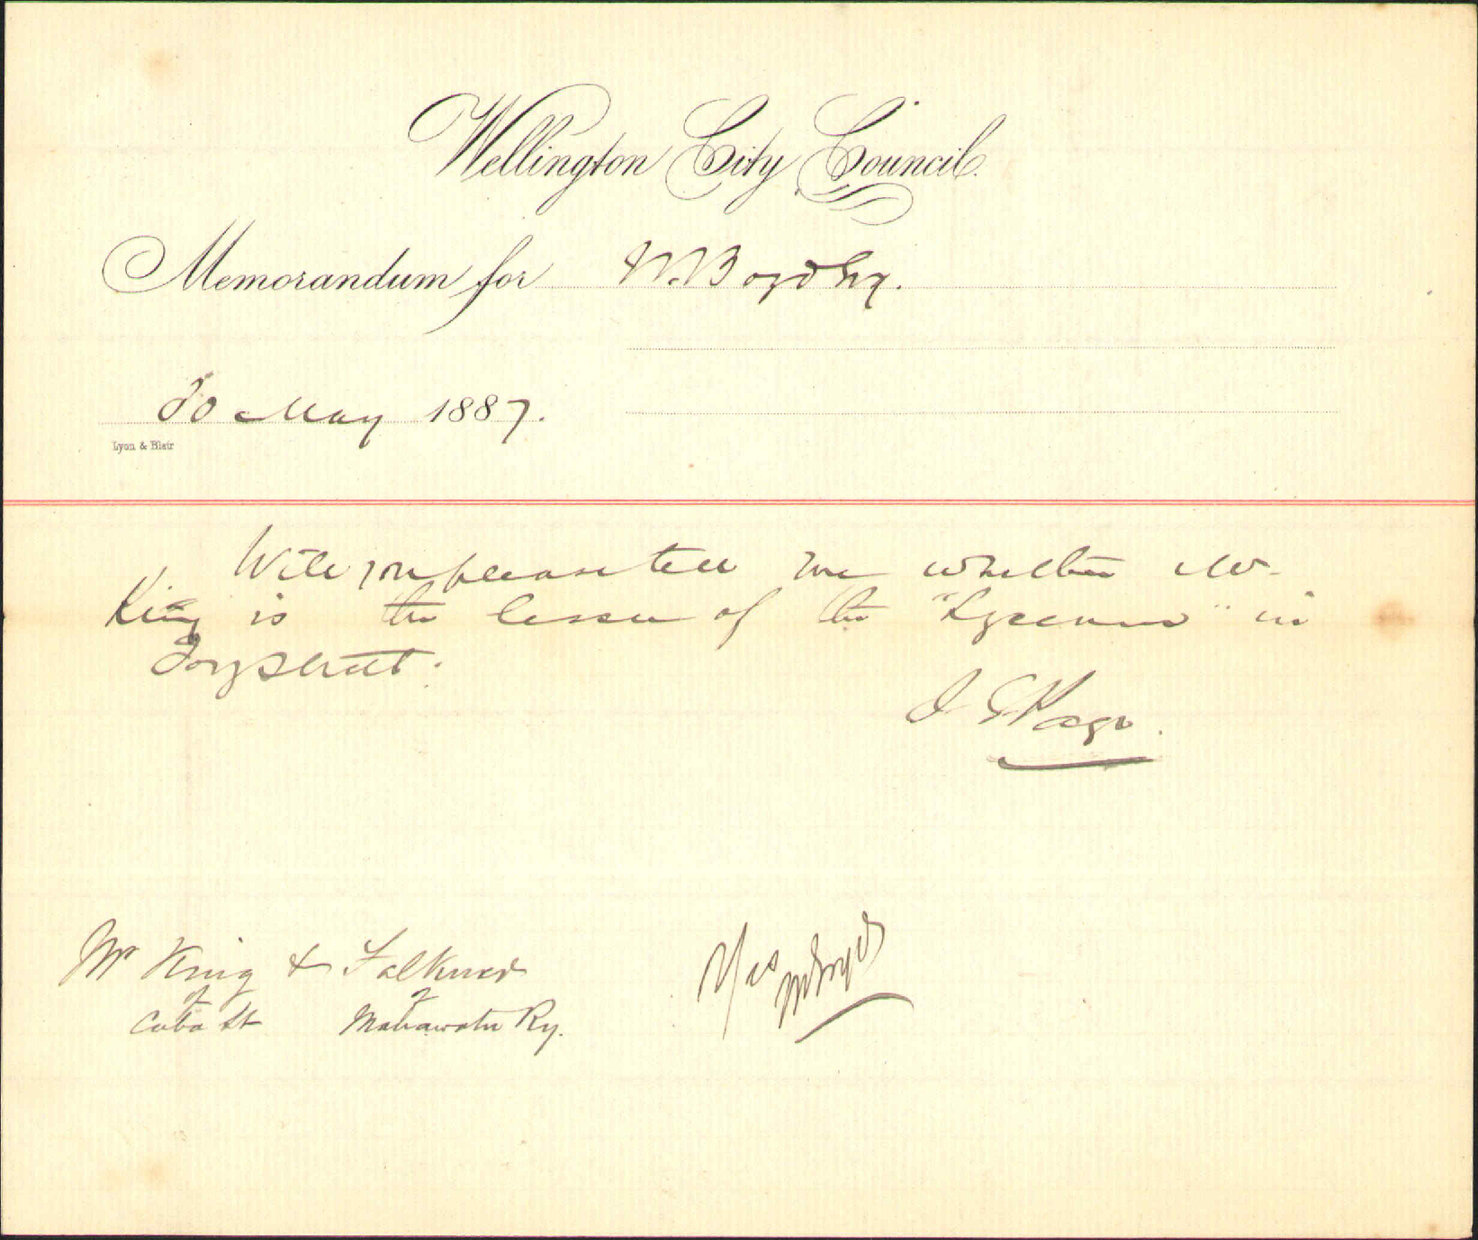 Wellington City Council.
Memorandum for W. Boyd Esq.
30 May 1887.
Lyon & Blair
Will you please tell me whether Mr
King is the lessee of the "Lyceum" in
Tory Street.
J G Page.
Mr King & Falkner
of of
Cuba St Manawatu Ry.
Yes
W Boyd